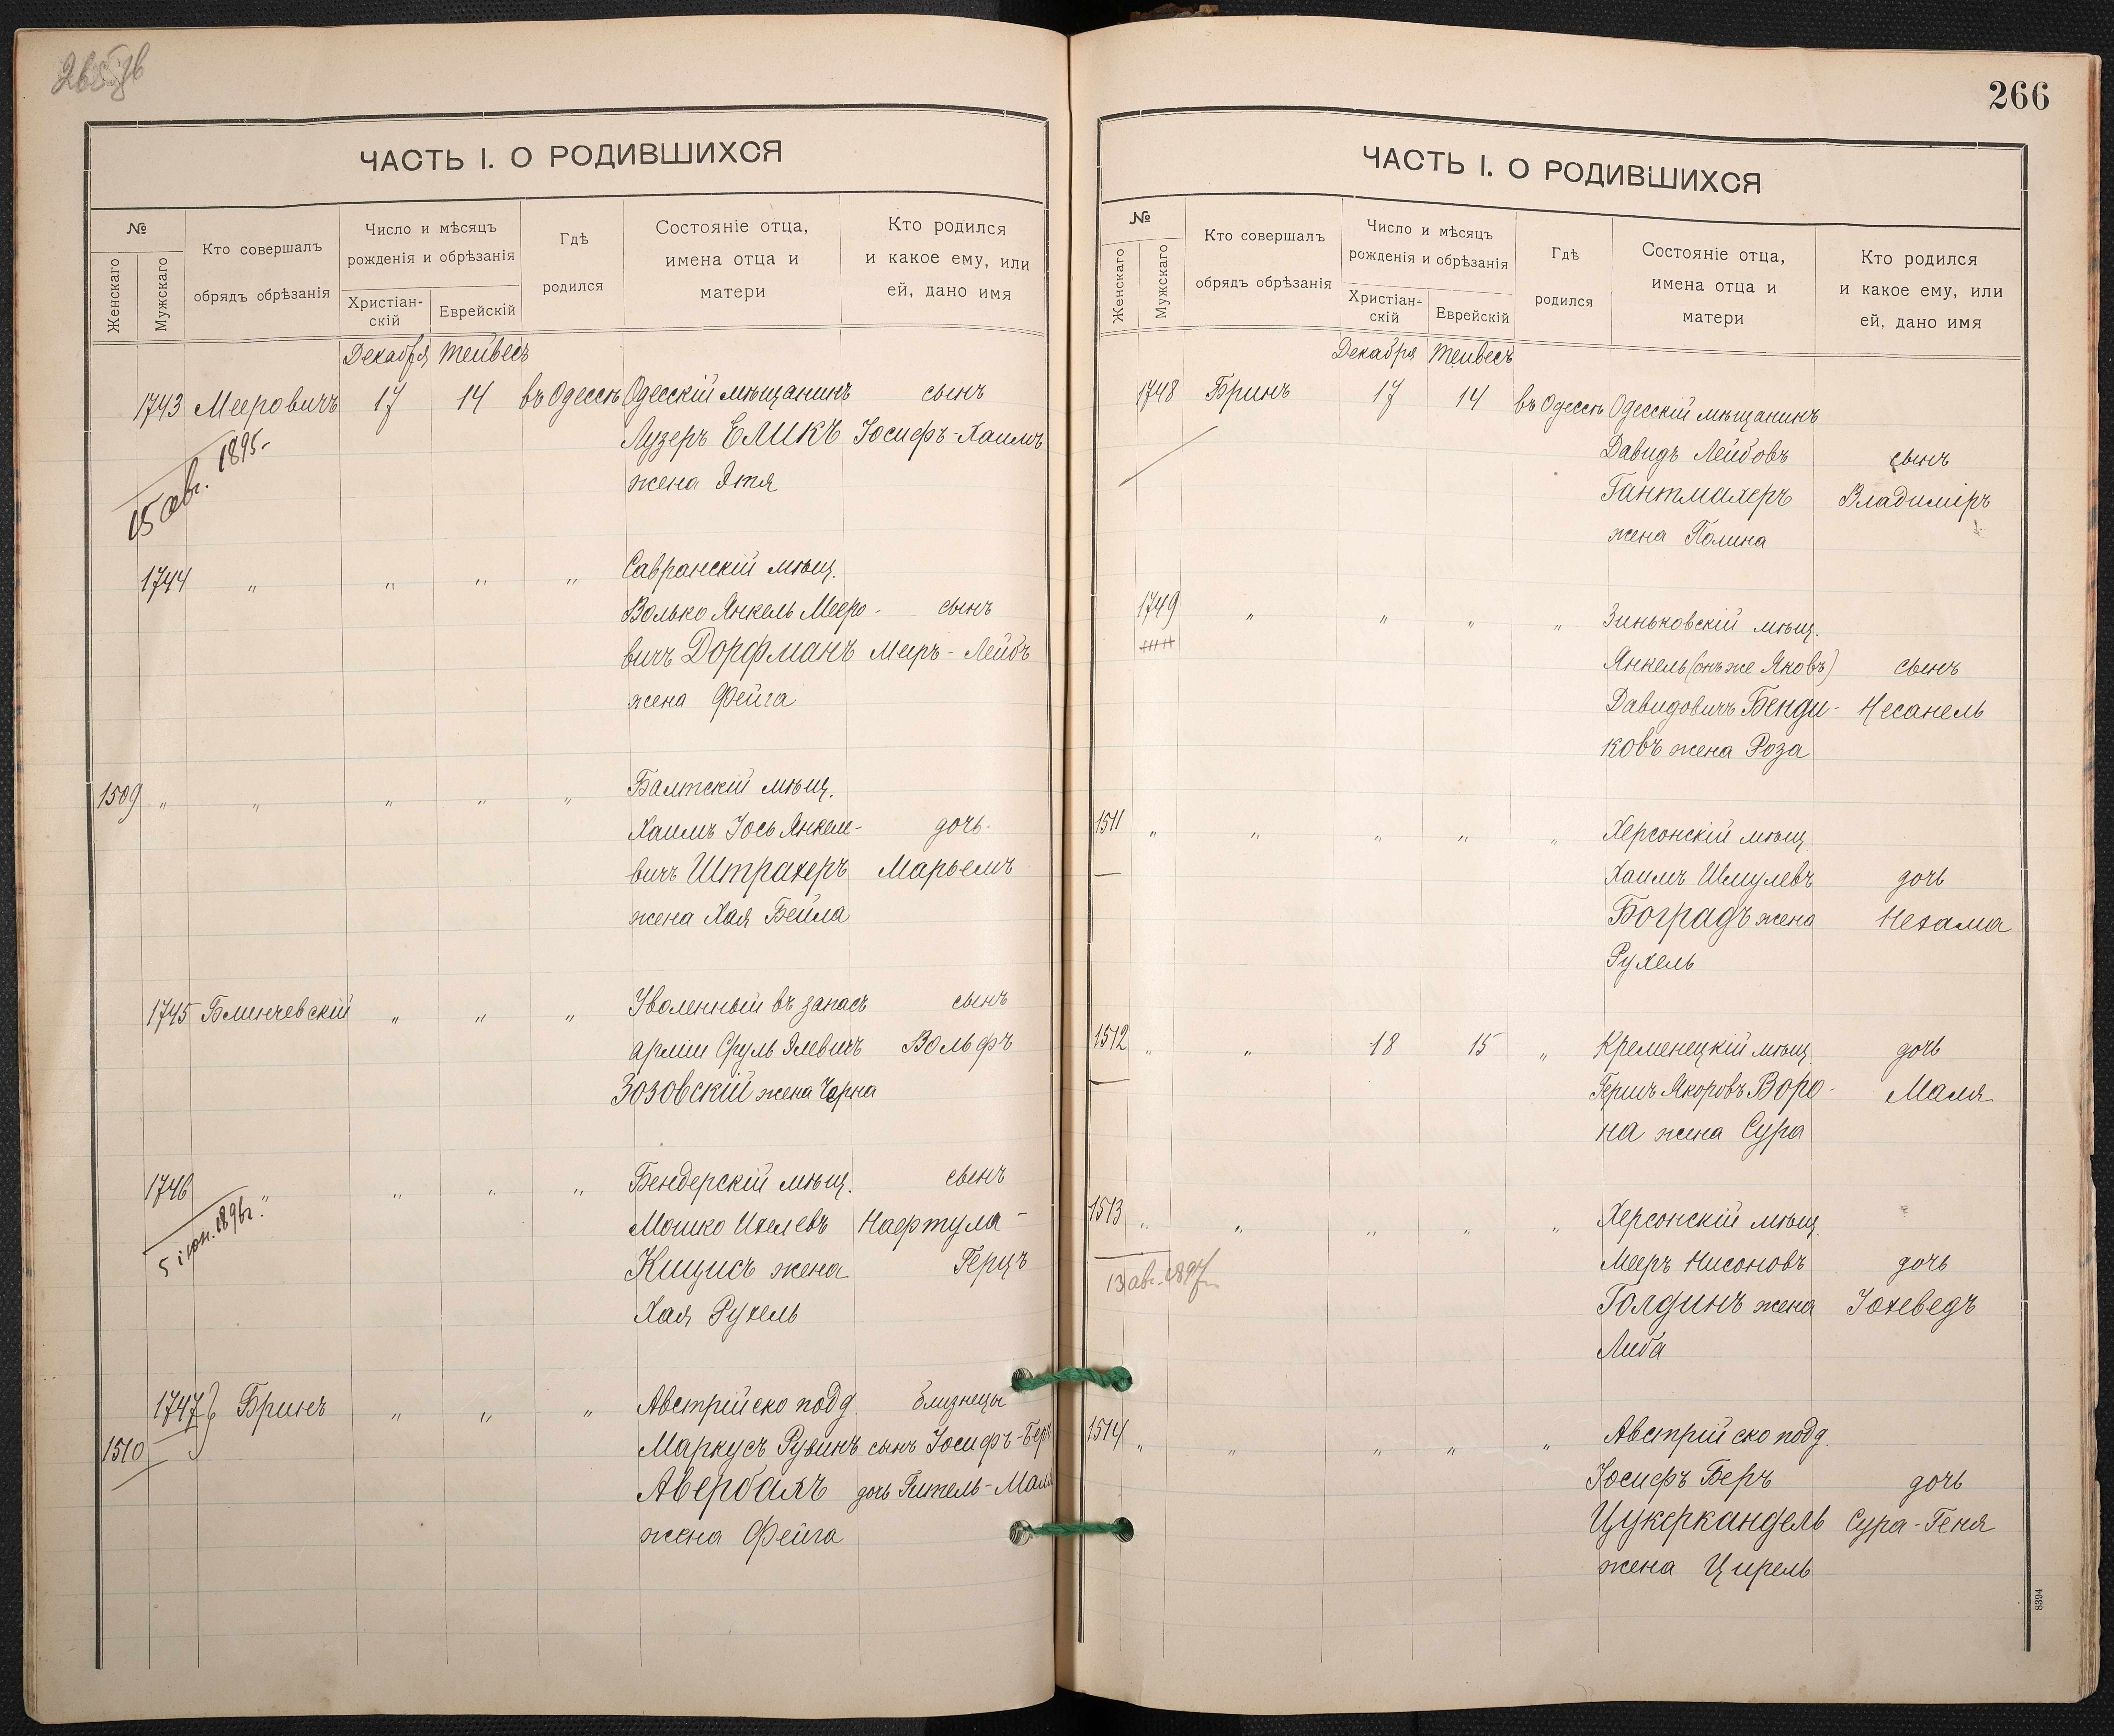 266
ЧАСТЬ I. О РОДИВШИХСЯ
№
Женскаго
Мужскаго
Кто совершалъ
обрядъ обрѣзанія
Число и мѣсяцъ
рожденія и обрѣзанія
Христіан-
скій
Еврейскій
Гдѣ
родился
Состояніе отца,
имена отца и
матери
Кто родился
и какое ему, или
ей, дано имя
Декабря Тейвесъ
1743 Мееровичъ 17 14 въ Одессѣ Одесскій мѣщанинъ сынъ
Лузеръ Еликъ Іосифъ-Хаимъ
жена Этя
15 авг. 1895
1744 " " " " Савранскій мѣщ.
Волько Янкель Мееро- сынъ
вичъ Дорфманъ Меръ-Лейбъ
жена Фейга
1509 " " " " " Балтскій мѣщ.
Хаимъ Іось Янкеле- дочь
вичъ Штрахеръ Марьемъ
жена Хая Бейла
1745 Блинчевскій " " " Уволенный въ запасъ сынъ
арміи Сруль Элевичъ Вольфъ
Зозовскій жена Черна
1746 " " " " Бендерскій мѣщ. сынъ
Мошко Ихелевъ Нафтула-
Кищисъ жена Герцъ
Хая Рухель
5 іюн. 1896г.
1747 Бринъ " " " Австрійско под. близнецы
1510 Маркусъ Рувинъ сынъ Іосифъ-Беръ
Авербахъ дочь Гитель-Маля
жена Фейга
266
ЧАСТЬ I. О РОДИВШИХСЯ
№
Женскаго
Мужскаго
Кто совершалъ
обрядъ обрѣзанія
Число и мѣсяцъ
рожденія и обрѣзанія
Христіан-
скій
Еврейскій
Гдѣ
родился
Состояніе отца,
имена отца и
матери
Кто родился
и какое ему, или
ей, дано имя
Декабря Тейвесъ
1748 Бринъ 17 14 въ Одессѣ Одесскій мѣщанинъ
Давидъ Лейбовъ сынъ
Гантмахеръ Владиміръ
жена Полина
1749 " " " " Зиньковскій мѣщ.
Янкель (онъ же Яковъ) сынъ
Давидовичъ Бенди- Несанель
ковъ жена Роза
1511 " " " " " Херсонскій мѣщ.
Хаимъ Шмулевъ дочь
Боградъ жена Нехама
Рухель
1512 " " 18 15 " Кременецкій мѣщ. дочь
Гершъ Якоровъ Воро- Маля
на жена Сура
1513 " " " " " Херсонскій мѣщ.
Мееръ Нисоновъ дочь
Голдинъ жена Іохеведъ
Либа
13 авг. 1897
1514 " " " " " Австрійско под.
Іосифъ Беръ дочь
Цукеркандель Сура-Геня
жена Цирель
8394